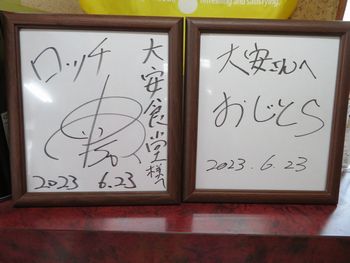 refreshing and satisfying.
ロッチ
大安食堂様へ
2023 6.23
大安さんへ
おじとら
2023.6.23